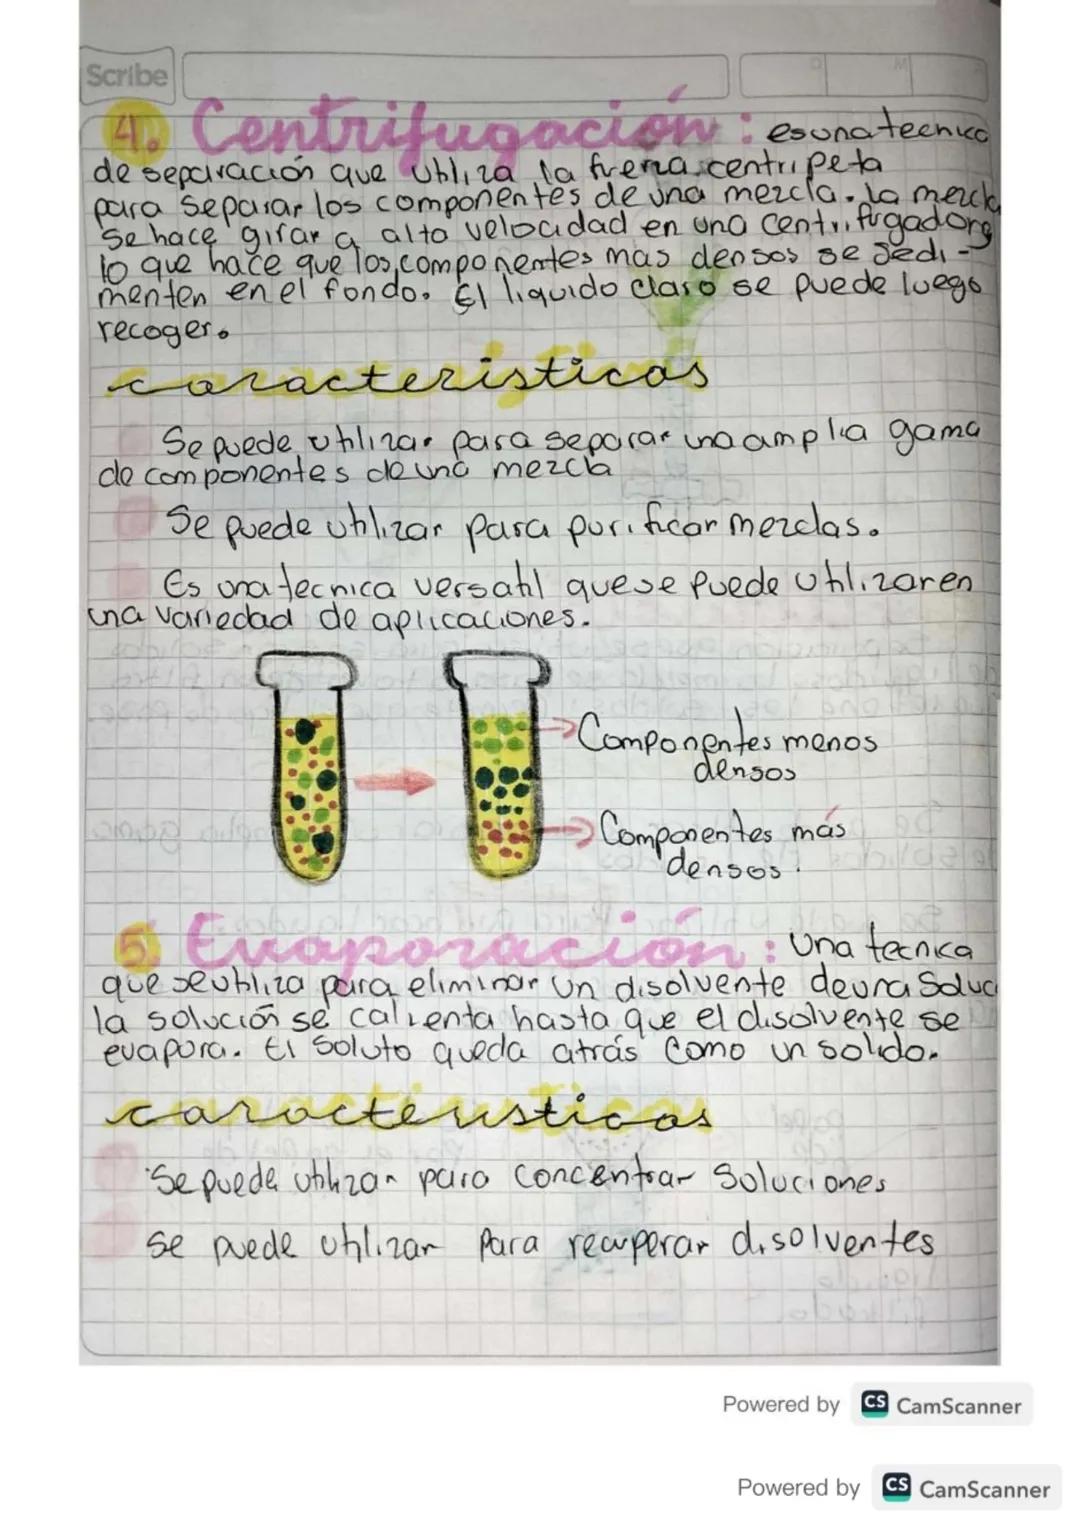 Scribe
D
M
4. Centrifugación: es una tecnica
de separación que utiliza la fuerza centripeta
para separar los componentes de una mezcla. La mezcla
se hace girar a alta velocidad en una centrifugadora
lo que hace que los componentes mas densos se sedi-
menten en el fondo. El liquido claro se puede luego
recoger.
caracteristicas
Se puede utilizar para separar una amplia gama
de componentes de una mezcla
Se puede utilizar para purificar mezclas.
Es una tecnica versatil que se puede utilizar en
una variedad de aplicaciones.
Componentes menos
densos
Componentes más
densos.
5. Evaporación: Una tecnica
que se utiliza para eliminar un disolvente de una Soluc
la solución se calienta hasta que el disolvente se
evapora. El Soluto queda atrás como un solido.
caracteristicas
Se puede utilizar para concentrar Soluciones
se puede utilizar para recuperar disolventes
Powered by CS CamScanner
Powered by CS CamScanner